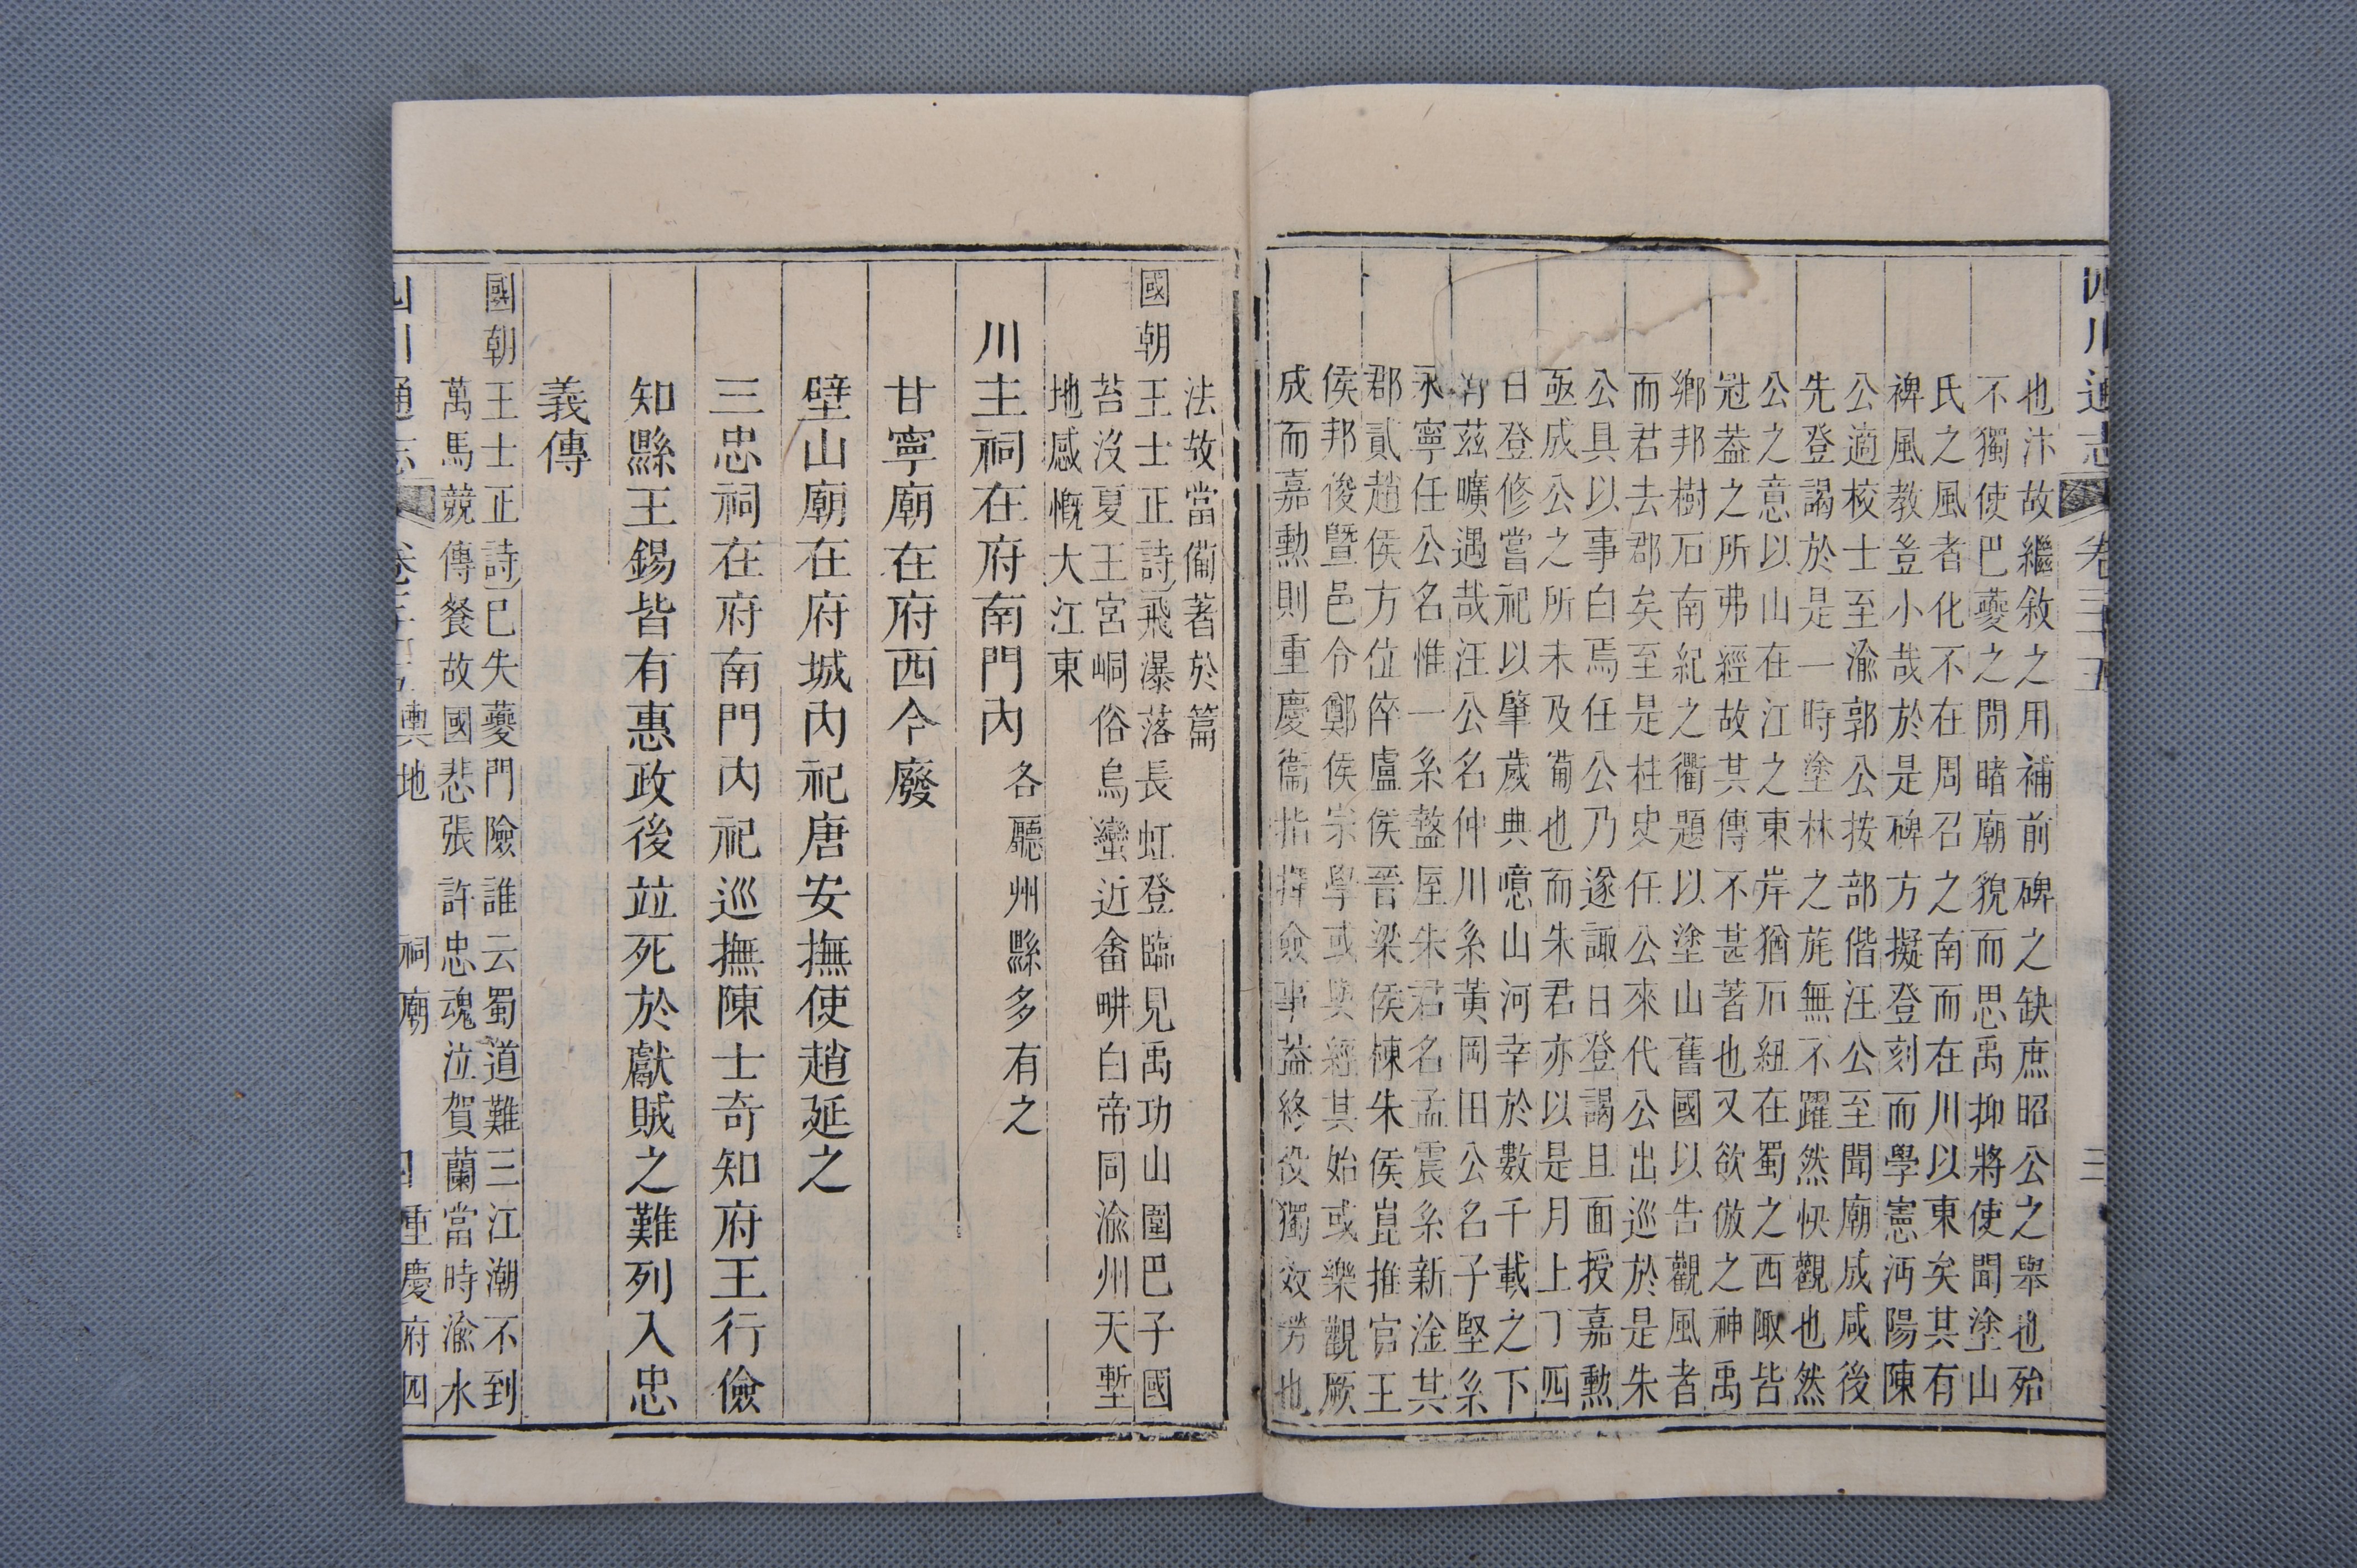 四川通志 卷三十五 三
也汴故繼敘之用補前碑之缺庶昭公之舉也殆
不獨使巴夔之間睹廟貌而思禹抑將使聞塗山
氏之風者化不在周召之南而在川以東矣其有
裨風教豈小哉於是碑方擬登刻而學憲沔陽陳
公適校士至渝郭公按部偕汪公至聞廟成咸後
先登謁於是一時塗林之旄無不躍然快觀也然
公之意以山在江之東岸猶石紐在蜀之西陬皆
冠葢之所弗經故其傳不甚著也又欲倣之神禹
鄉邦樹石南紀之衢題以塗山舊國以告觀風者
而君去郡矣至是柱史任公來代公出巡於是朱
公具以事白焉任公乃遂諏日登謁且面授嘉勲
亟成公之所未及葡也而朱君亦以是月上丁四
日登修嘗祀以肇歲典噫山河幸於數千載之下
茲曠遇哉汪公名仲川系黃岡田公名子堅系
永寧任公名惟一系盩厔朱君名孟震系新淦其
郡貳趙侯方位倅盧侯晉梁侯棟朱侯崑推官王
侯邦俊暨邑令鄭侯宗學或與經其始或樂觀厥
成而嘉勲則重慶衞指揮僉事葢終役獨效勞也
法故當備著於篇
國朝王士正詩飛瀑落長虹登臨見禹功山圍巴子國
苔沒夏王宮峒俗烏蠻近畬畊白帝同渝州天塹
地感慨大江東
川主祠在府南門內各廳州縣多有之
甘寧廟在府西今廢
壁山廟在府城內祀唐安撫使趙延之
三忠祠在府南門內祀巡撫陳士奇知府王行儉
知縣王錫皆有惠政後竝死於獻賊之難列入忠
義傳
國朝王士正詩巳失夔門險誰云蜀道難三江潮不到
萬馬競傳餐故國悲張許忠魂泣賀蘭當時渝水
四川通志 卷三十五 輿地 祠廟 重慶府四